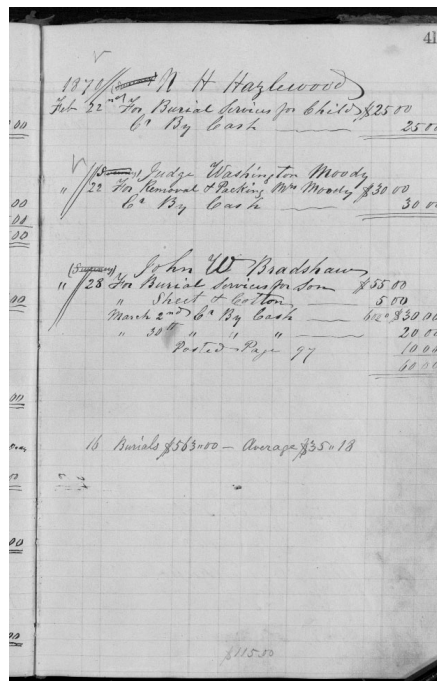 41
1870 N H Hazlewood
Feb 22nd For Burial Services for Child $25 00
Cr By Cash 25 00
Judge Washington Moody
" 22 For Removal & Packing Mrs Moody $30 00
Cr By Cash 30 00
John W Bradshaw
" 28 For Burial Services for Son $55.00
" Sheet & Cotton 5.00
March 2nd Cr By Cash $30 00
" 30th " " " 20 00
Posted Page 97 10 00
60 00
16 Burials $563"00 – Average $35"18
$115.00